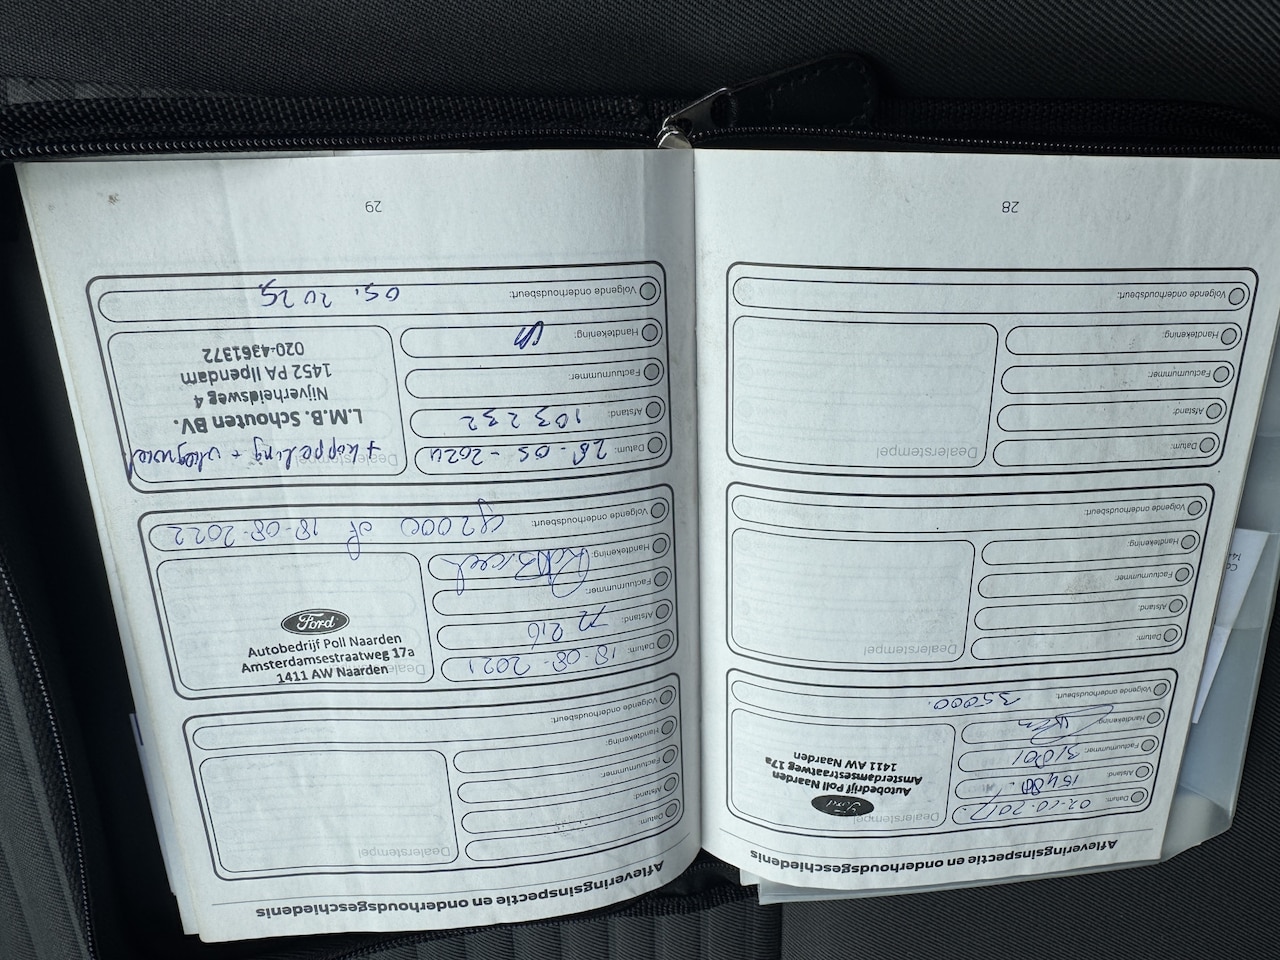 Afleveringsinspectie en onderhoudsgeschiedenis
Datum: 02-10-2017
Afstand:
Factuurnummer:
Handtekening:
Volgende onderhoudsbeurt: 35000.
Dealerstempel
Ford
Autobedrijf Poll Naarden
Amsterdamsestraatweg 17a
1411 AW Naarden
Datum:
Afstand:
Factuurnummer:
Handtekening:
Volgende onderhoudsbeurt:
Dealerstempel
Datum:
Afstand:
Factuurnummer:
Handtekening:
Volgende onderhoudsbeurt:
Dealerstempel
28
Afleveringsinspectie en onderhoudsgeschiedenis
Datum:
Afstand:
Factuurnummer:
Handtekening:
Volgende onderhoudsbeurt:
Dealerstempel
Datum: 18-08-2021
Afstand: 72 216
Factuurnummer:
Handtekening:
Volgende onderhoudsbeurt: 92000 of 18-08-2022
Dealerstempel
Ford
Autobedrijf Poll Naarden
Amsterdamsestraatweg 17a
1411 AW Naarden
Datum: 28-05-2024
Afstand: 103232
Factuurnummer:
Handtekening:
Volgende onderhoudsbeurt: 05. 2025
Dealerstempel
+ koppeling + vliegwiel
L.M.B. Schouten BV.
Nijverheidsweg 4
1452 PA Ilpendam
020-4361372
29